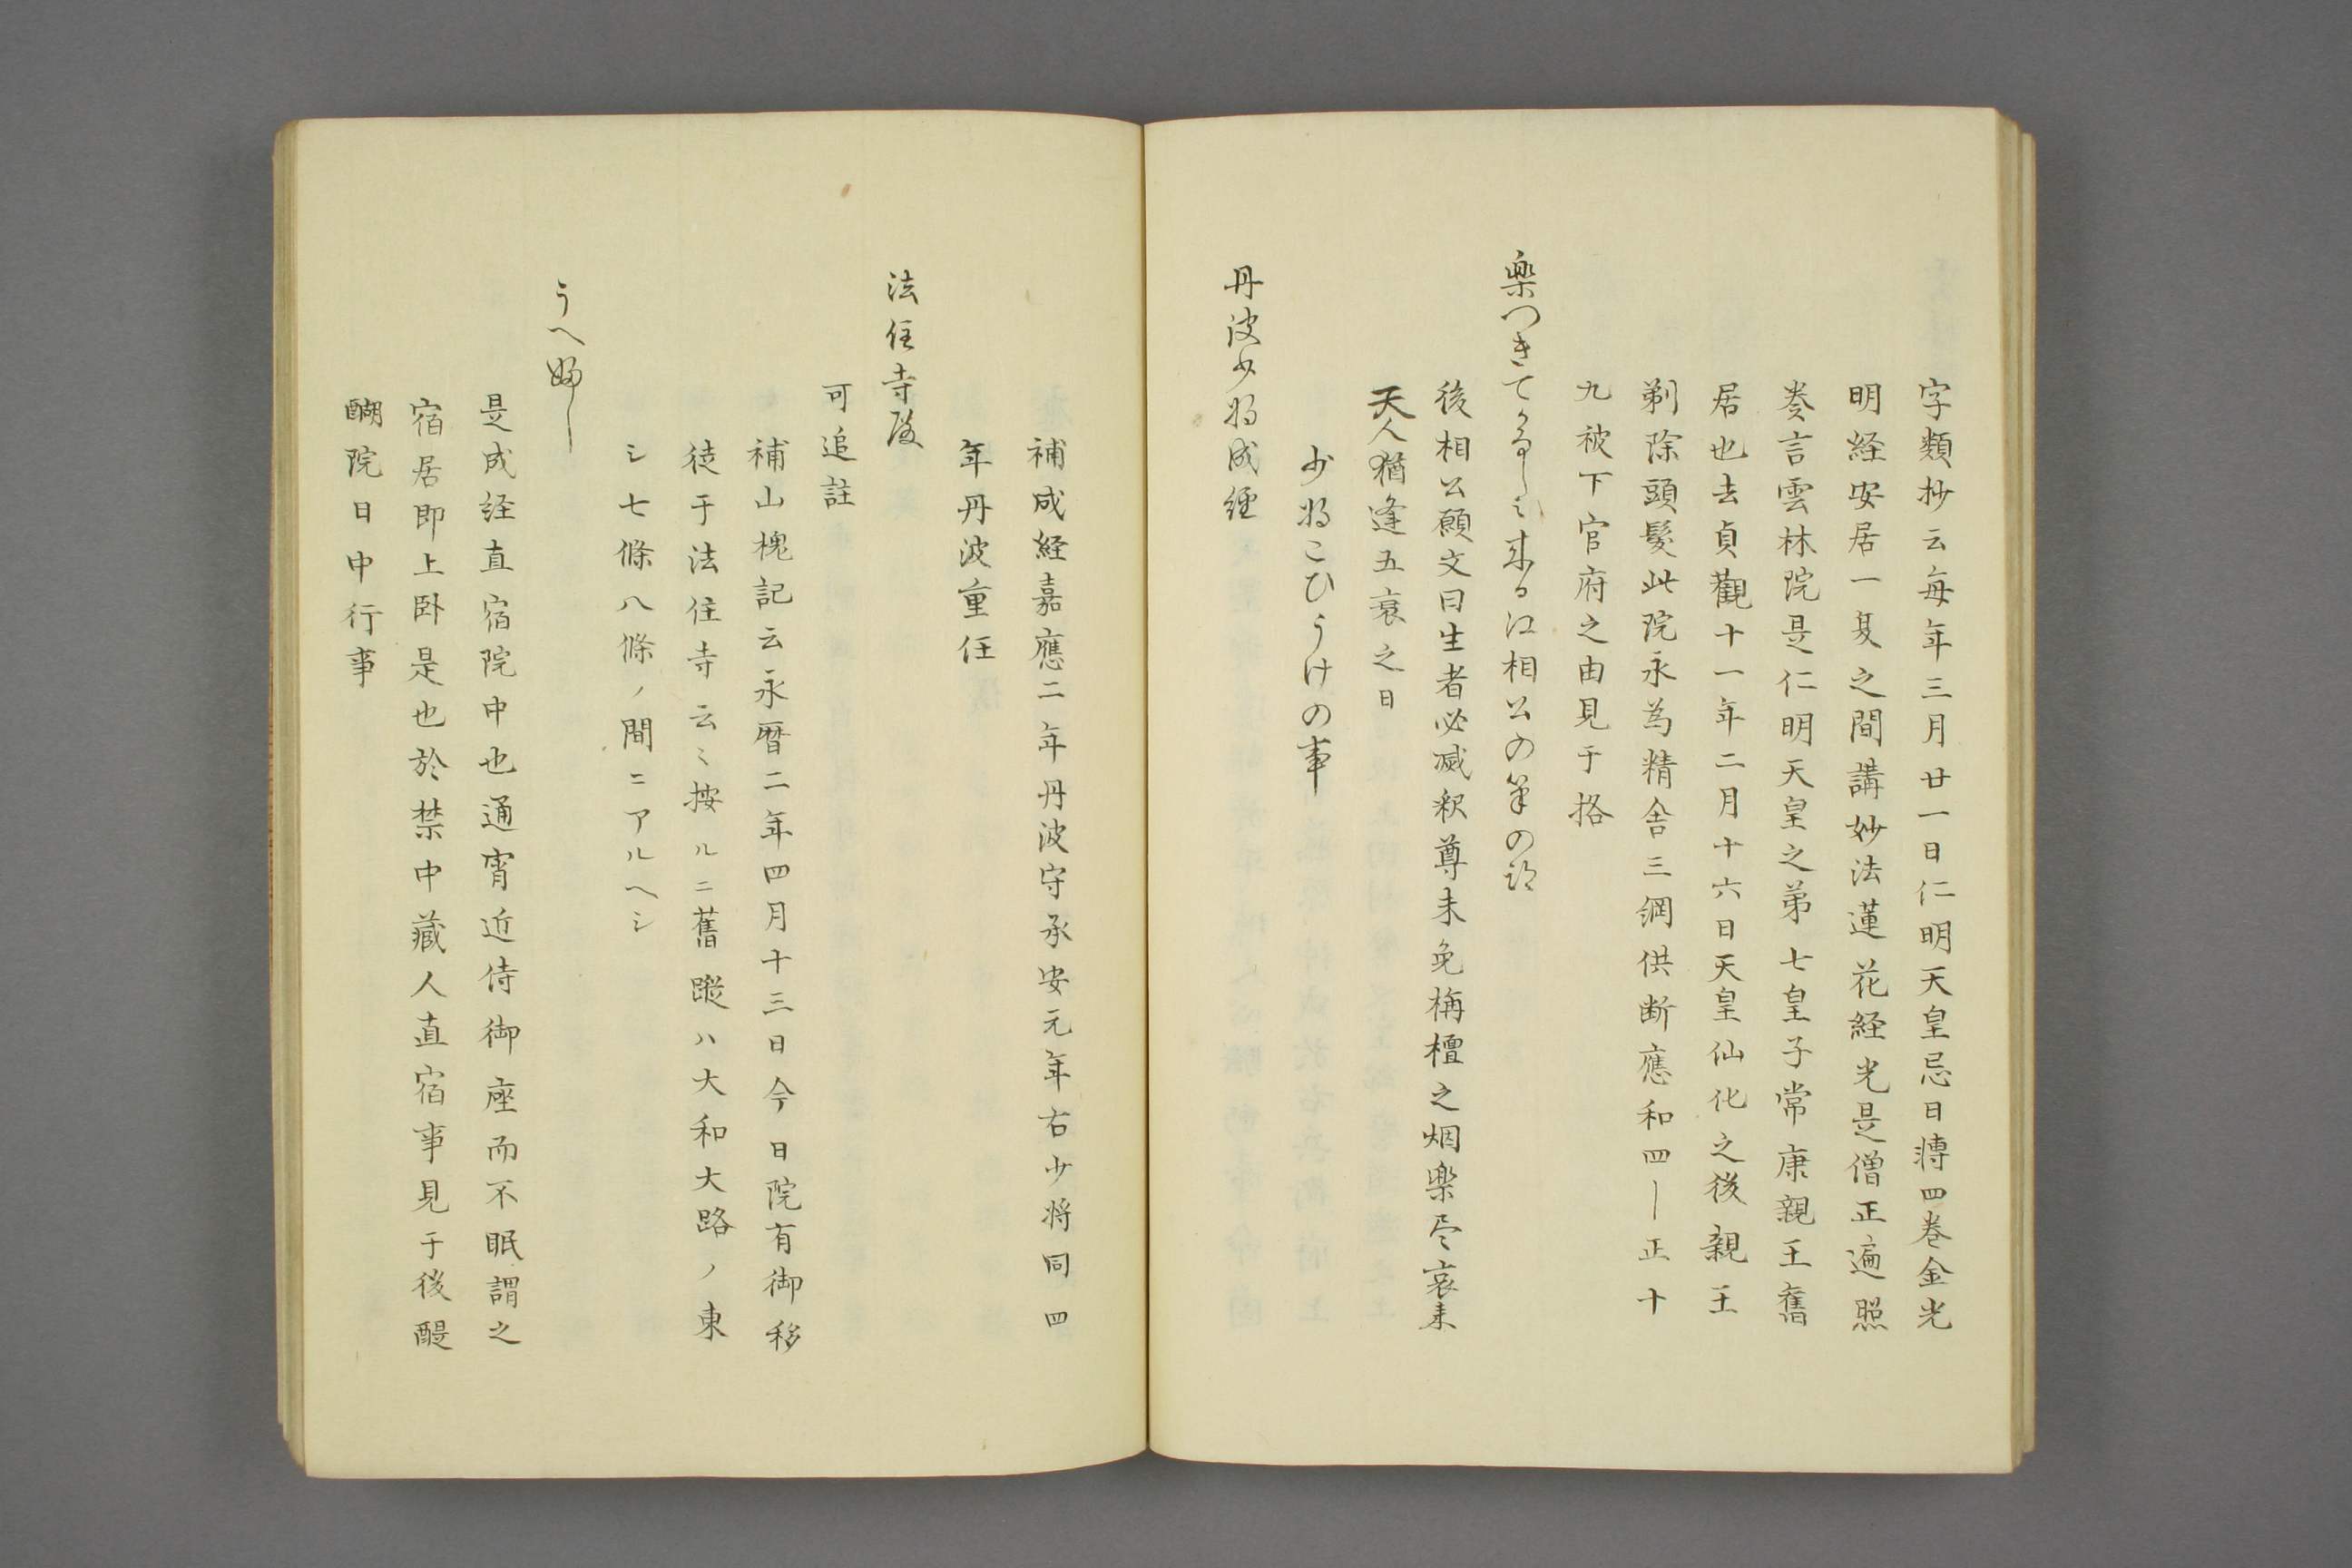 字類抄云毎年三月廿一日仁明天皇忌日轉四巻金光
明経安居一夏之間講妙法蓮花経光是僧正遍照
奏言雲林院是仁明天皇之第七皇子常康親王舊
居也去貞觀十一年二月十六日天皇仙化之後親王
剃除頭髪此院永為精舎三綱供断應和四｜正十
九被下官府之由見于格
楽つきてかなしミ来る江相公の筆の跡
後相公願文曰生者必滅釈尊未免栴檀之烟楽尽哀来
天人猶逢五衰之日
少将こひうけの事
丹波少将成経
補成経嘉應二年丹波守承安元年右少将同四
年丹波重任
法住寺殿
可追註
補山槐記云永暦二年四月十三日今日院有御移
徒于法住寺云〻按ルニ舊蹤ハ大和大路ノ東
シ七條八條ノ間ニアルヘシ
うへ婦し
是成経直宿院中也通宵近侍御座而不眠謂之
宿居即上卧是也於禁中藏人直宿事見于後醍
醐院日中行事